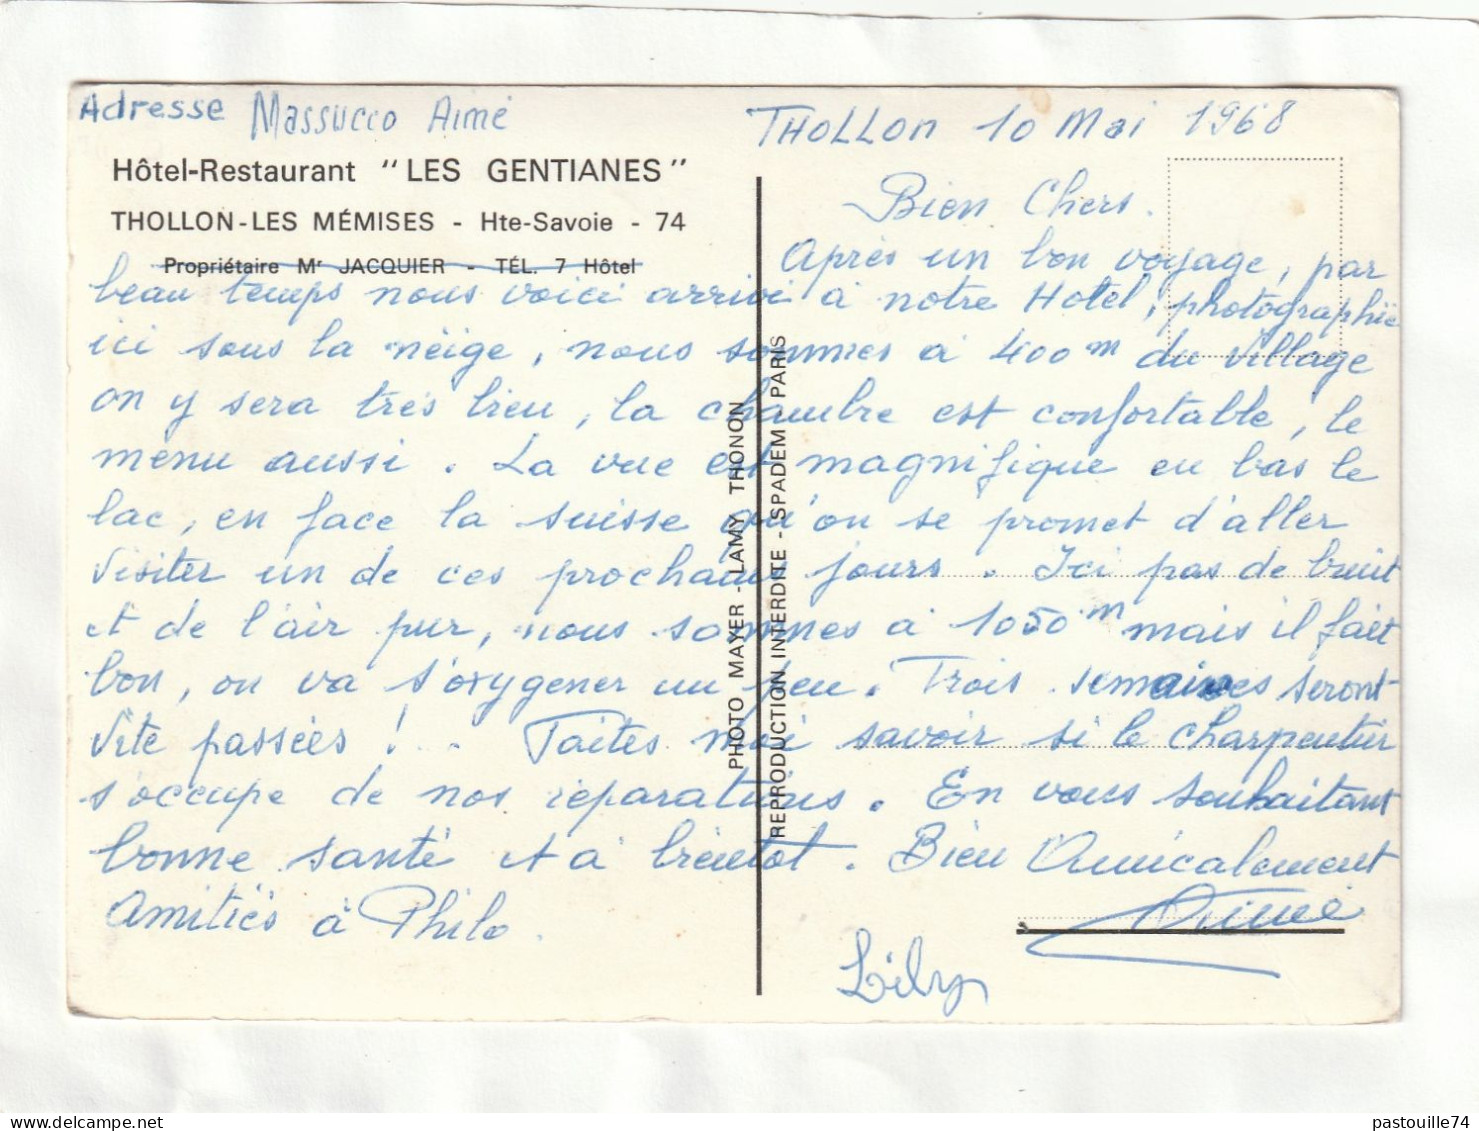 Adresse Massucco Aimé
Hôtel-Restaurant "LES GENTIANES"
THOLLON-LES MÉMISES - Hte-Savoie - 74
Propriétaire Mr JACQUIER - TÉL. 7 Hôtel
THOLLON 10 Mai 1968
Bien Chers.
Après un bon voyage, par
beau temps nous voici arrivé à notre Hotel, photographïe
ici sous la nëige, nous sommes à 400m du village
on y sera très bien, la chambre est confortable, le
menu aussi. La vue est magnifique en bas le
lac, en face la suisse qu'on se promet d'aller
visiter un de ces prochains jours. Ici pas de bruit
et de l'air pur, nous sommes à 1050m mais il fait
bon, on va s'oxygener un peu. Trois semaines seront
vite passées ! . Faites moi savoir si le charpentier
s'occupe de nos réparations. En vous souhaitant
bonne santé et à bientot. Bien Amicalement
Amitiés à Philo. Aimé
Lily
PHOTO MAYER - LAMY THONON
REPRODUCTION INTERDITE - SPADEM - PARIS
pastouille74